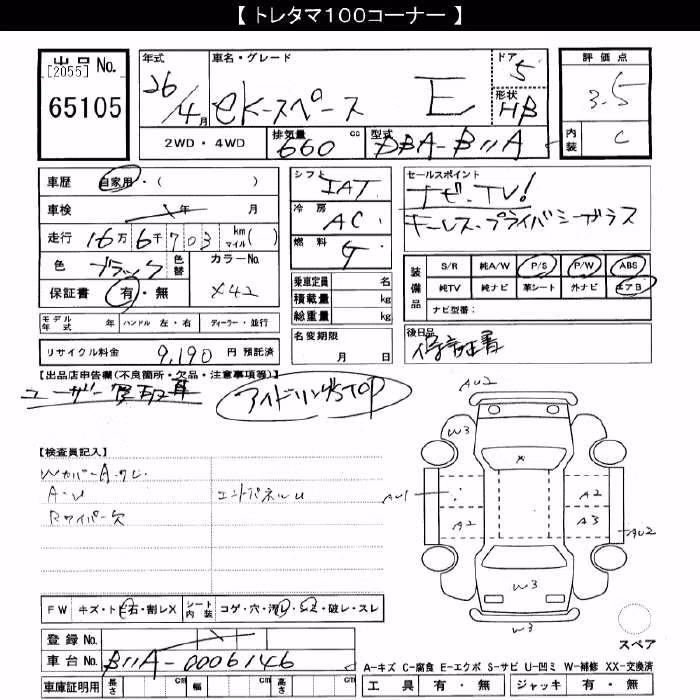 【トレタマ100コーナー】
出品 No.
[2055]
65105
年式 26/4月
車名・グレード eKスペース E
ドア 5
形状 HB
2WD・4WD
排気量 660 cc
型式 DBA-B11A
評価点 3.5
内装 C
車歴 自家用・( )
車検 年 月
走行 16万6千703 km マイル( )
色 ブラック 色替
カラーNo. X42
保証書 有・無
シフト IAT
冷房 AC
燃料 G
乗車定員 名
積載量 kg
総重量 kg
名変期限
月 日
セールスポイント
ナビ・TV!
キーレス・プライバシーガラス
装備品
S/R 純A/W P/S P/W ABS
純TV 純ナビ 革シート 外ナビ エアB
ナビ型番:
後日品
保証書
モデル年式 年 ハンドル 左・右 ディーラー・並行
リサイクル料金 9,190 円 預託済
【出品店申告欄(不良箇所・欠品・注意事項等)】
ユーザー買取車
アイドリングSTOP
【検査員記入】
WカバーA.クレ
A・U
エンドパネルU
Rワイパー欠
AU2
W3
X
AU1
A2
A2
A3
AU2
W3
W3
FW キズ・トビ石・割レX シート内装 コゲ・穴・汚レ・シミ・破レ・スレ
登録 No.
車台 No. B11A-0006146
車庫証明用 長さ cm 幅 cm 高さ cm
スペア
A-キズ C-腐食 E-エクボ S-サビ U-凹ミ W-補修 XX-交換済
工具 有・無 ジャッキ 有・無